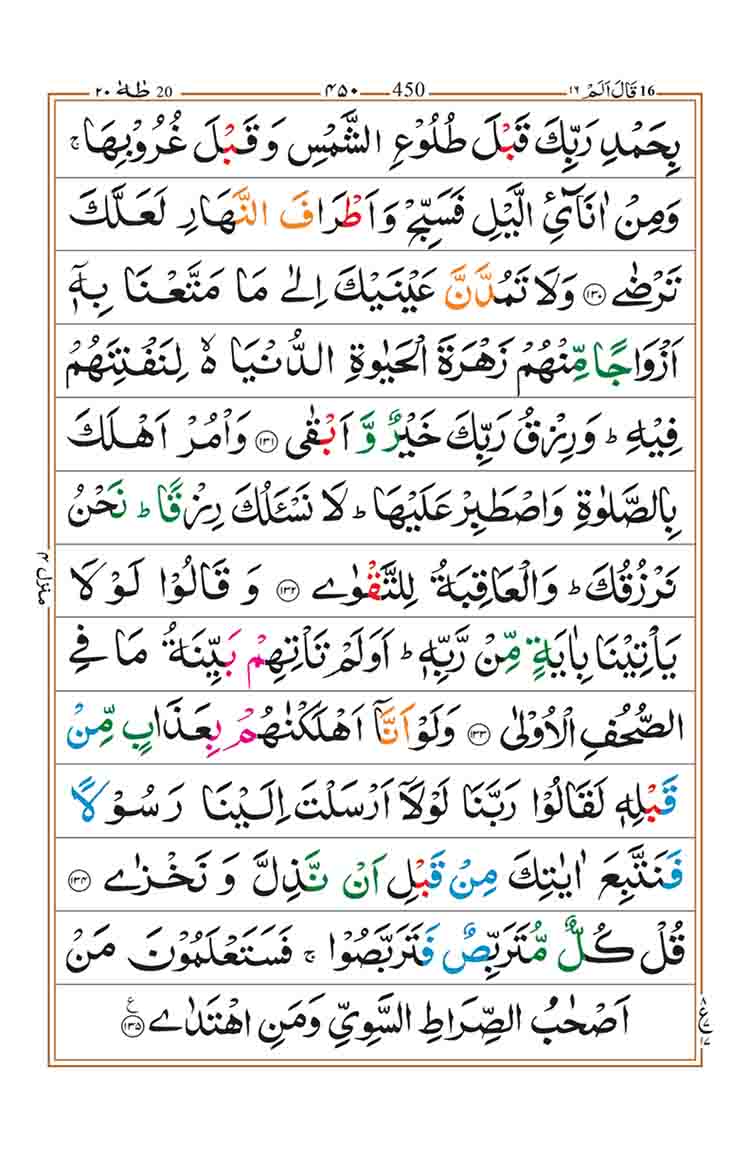 16 قَالَ اَلَمْ ١٦ 450 ۴۵۰ 20 طٰهٰ ٢٠
بِحَمْدِ رَبِّكَ قَبْلَ طُلُوْعِ الشَّمْسِ وَ قَبْلَ غُرُوْبِهَا ۚ
وَمِنْ اٰنَآئِ الَّيْلِ فَسَبِّحْ وَاَطْرَافَ النَّهَارِ لَعَلَّكَ
تَرْضٰى ﴿١٣٠﴾ وَلَا تَمُدَّنَّ عَيْنَيْكَ اِلٰى مَا مَتَّعْنَا بِهٖٓ
اَزْوَاجًا مِّنْهُمْ زَهْرَةَ الْحَيٰوةِ الدُّنْيَا ۙ لِنَفْتِنَهُمْ
فِيْهِ ؕ وَرِزْقُ رَبِّكَ خَيْرٌ وَّ اَبْقٰى ﴿١٣١﴾ وَاْمُرْ اَهْلَكَ
بِالصَّلٰوةِ وَاصْطَبِرْ عَلَيْهَا ؕ لَا نَسْـَٔلُكَ رِزْقًا ؕ نَحْنُ
نَرْزُقُكَ ؕ وَالْعَاقِبَةُ لِلتَّقْوٰى ﴿١٣٢﴾ وَ قَالُوْا لَوْلَا
يَاْتِيْنَا بِاٰيَةٍ مِّنْ رَّبِّهٖ ؕ اَوَلَمْ تَاْتِهِمْ بَيِّنَةُ مَا فِى
الصُّحُفِ الْاُوْلٰى ﴿١٣٣﴾ وَلَوْ اَنَّاۤ اَهْلَكْنٰهُمْ بِعَذَابٍ مِّنْ
قَبْلِهٖ لَقَالُوْا رَبَّنَا لَوْلَاۤ اَرْسَلْتَ اِلَيْنَا رَسُوْلًا
فَنَتَّبِعَ اٰيٰتِكَ مِنْ قَبْلِ اَنْ نَّذِلَّ وَ نَخْزٰى ﴿١٣٤﴾
قُلْ كُلٌّ مُّتَرَبِّصٌ فَتَرَبَّصُوْا ۚ فَسَتَعْلَمُوْنَ مَنْ
اَصْحٰبُ الصِّرَاطِ السَّوِىِّ وَمَنِ اهْتَدٰى ﴿١٣٥﴾ ع
منزل ۴
٨ ع ٧ ١٧